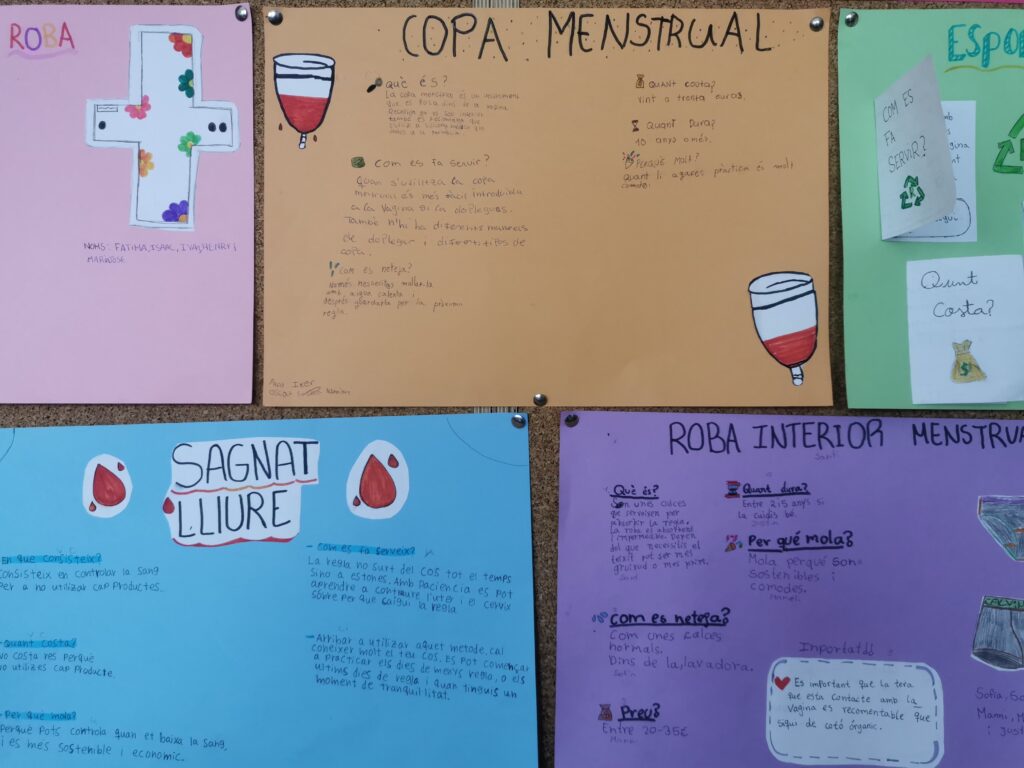 ROBA
NOMS: FATIMA, ISAAC, IVAN, HENRY i
COPA MENSTRUAL
què és?
La copa menstrual és un instrument
que es posa dins de la vagina
també es recomana que
com es fa servir?
Quan s'utilitza la copa
menstrual és més fàcil introduirla
a la vagina si la doplegues.
També n'hi ha diferents maneres
de doplegar i diferents tipos de
copa.
com es neteja?
Només necessites mullar-la
amb aigua calenta i
després guardarla per la próxima
regla.
Quant costa?
vint o trenta euros.
Quant Dura?
10 anys o més.
PERQUÈ MOLA?
Quant li agafes pràctica és molt
comode.
ESPO
COM ES
FA
SERVIR?
Qunt
Costa?
$
SAGNAT
LLIURE
En que consisteix?
Consisteix en controlar la sang
per a no utilizar cap productes.
- Quant costa?
No costa res perquè
no utilizes cap producte.
- Per què mola?
Perque pots controla quan et baixa la sang,
i es més sostenible i economic.
- com es fa serveix?
La regla no surt del cos tot el temps
sino a estones. Amb paciencia es pot
aprendre a controure l'uter i el cervix
sobre per que saigui la regla.
- Arribar a utilizar aquet metode, cal
coneixer molt el teu cos. Es pot començar
a practicar els dies de menys regla, o els
ultims dies de regla i quan tinguis un
moment de tranquilitat.
ROBA INTERIOR MENSTRUA
Què és?
Són unes calces
que serveixen per
absorbir la regla.
La roba és absorbent
i impermeable. Depen
del que necesitis el
teixit pot ser més
gruixud o més prim.
Quant dura?
Entre 2 i 5 anys si
la cuides bé.
Per què mola?
Mola perquè son
sostenibles i
comodes.
com es neteja?
Com unes calces
normals.
Dins de la lavadora.
Preu?
Entre 20-35€
Importat
Es important que la tera
que esta contacte amb la
vagina es recomentable que
sigui de cotó órganic.
Sofia, So